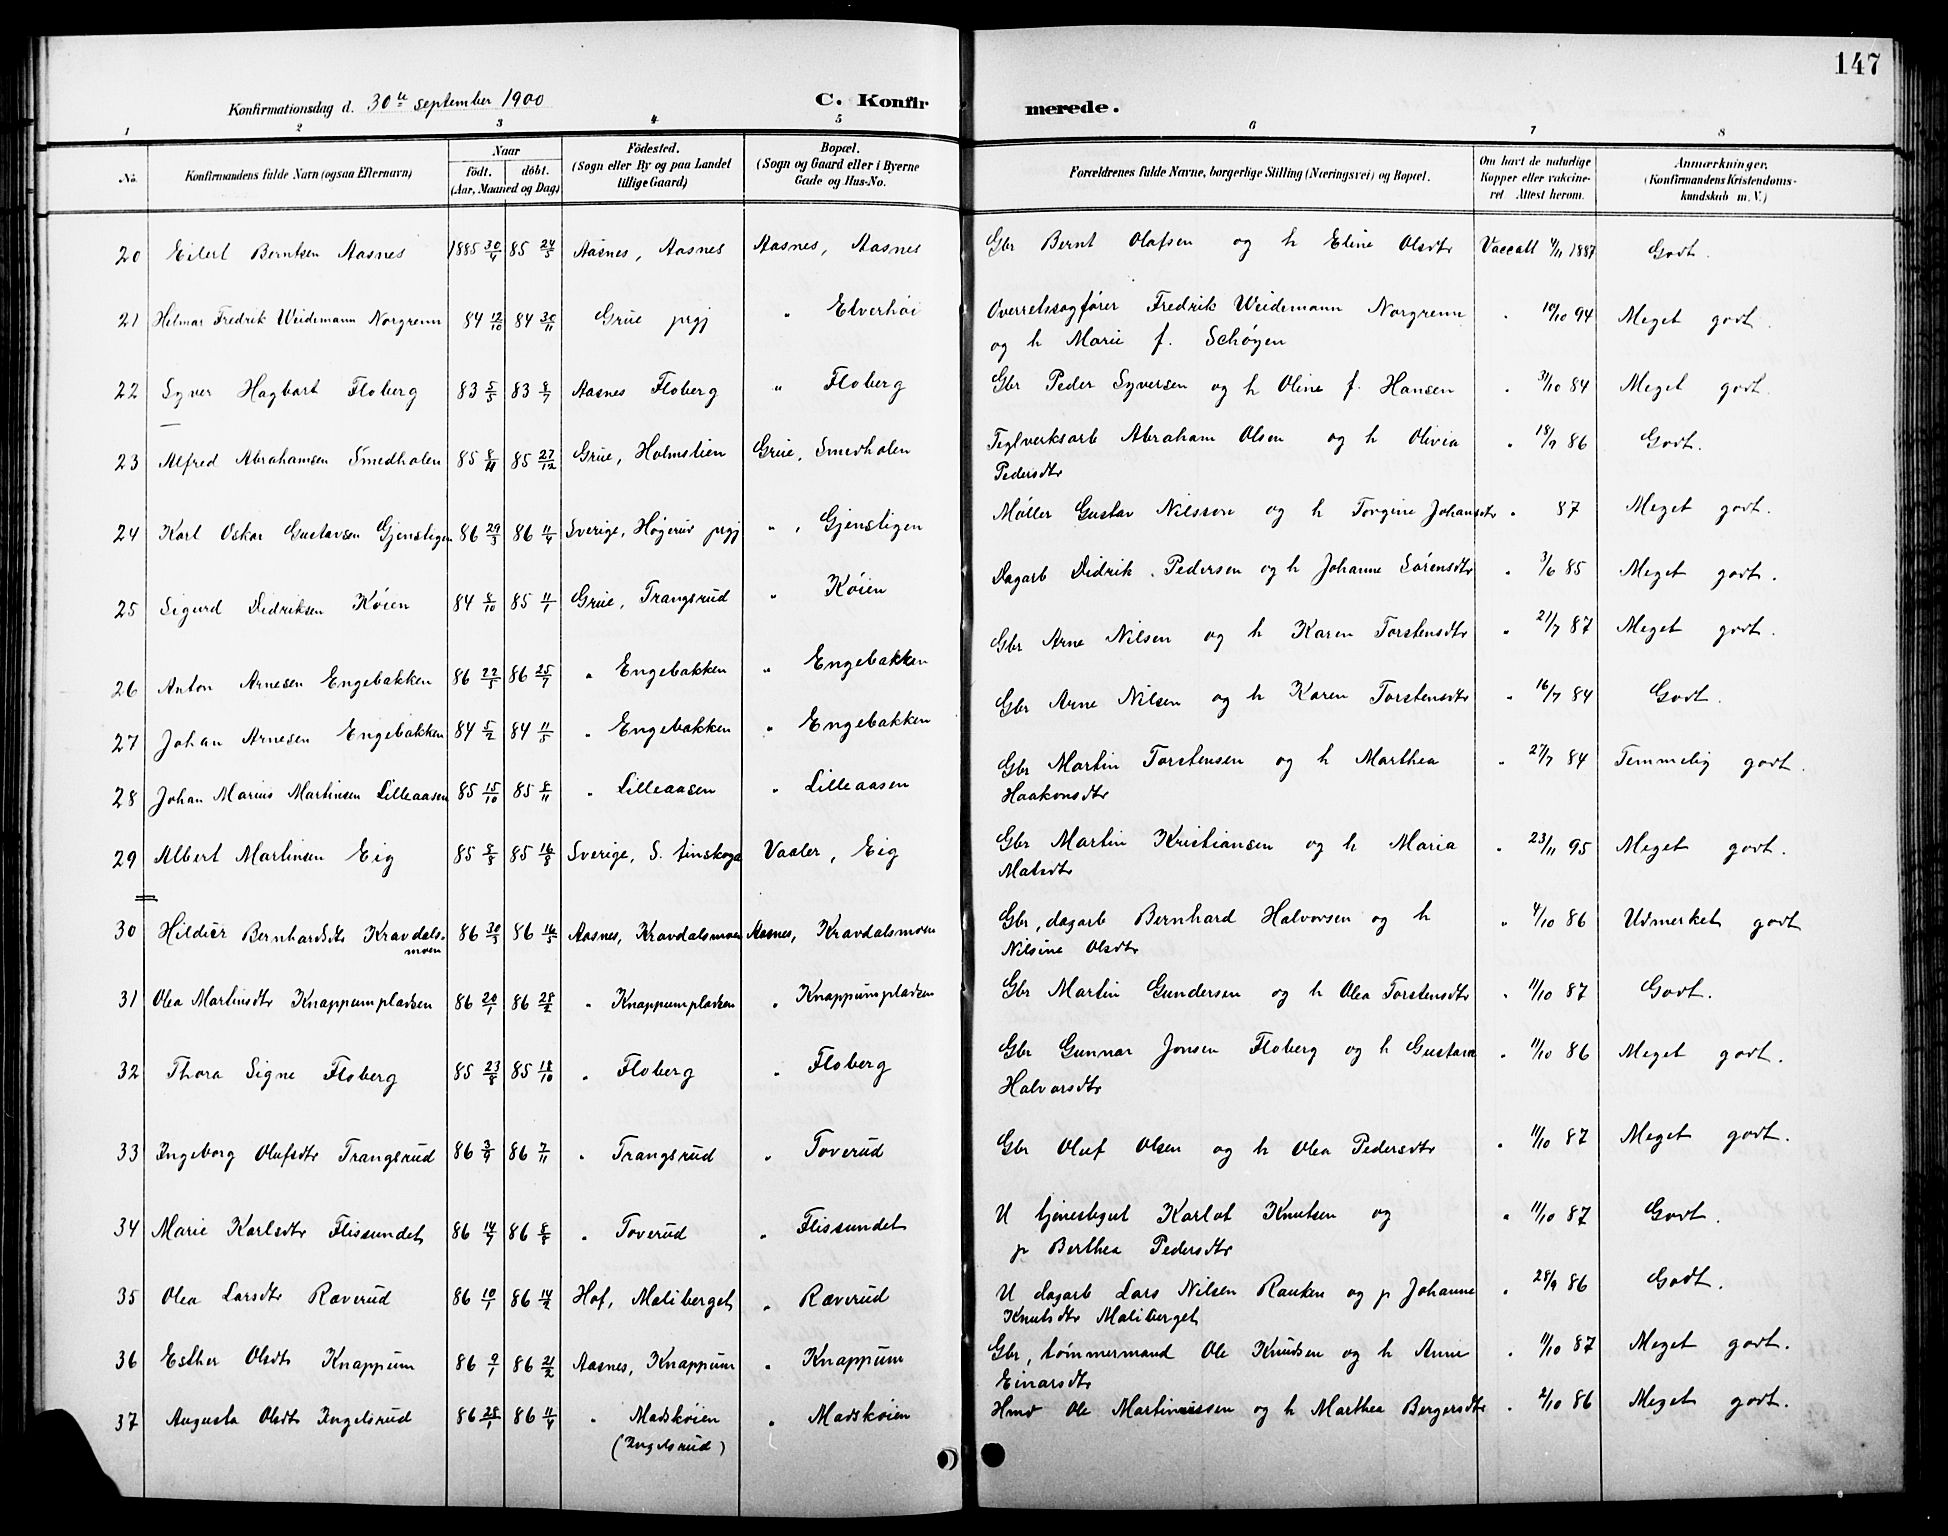 147
Konfirmationsdag d. 30te september 1900 C. Konfirmerede.
1 2 3 4 5 6 7 8
No. Konfirmandens fulde Navn (ogsaa Efternavn) Naar født. døbt. (Aar, Maaned og Dag) Fødested. (Sogn eller By og paa Landet tillige Gaard) Bopæl. (Sogn og Gaard eller i Byerne Gade og Hus-No. Forældrenes fulde Navne, borgerlige Stilling (Næringsvei) og Bopæl. Om havt de naturlige Kopper eller vakcineret Attest herom. Anmærkninger. (Konfirmandens Kristendomskundskab m. V.)
20 Eilert Berntsen Aasnes 1885 30/4 85 24/5 Aasnes, Aasnes Aasnes, Aasnes Gbr Bernt Olafsen og h Eline Olsdtr Vaccatt 4/11 1887 Godt.
21 Helmar Fredrik Weidemann Norgrenn 84 12/10 84 30/11 Grue prgj " Elverhøi Overretssagfører Fredrik Weidemann Norgrenn " 10/10 94 Meget godt.
og h Marie f. Schøyen
22 Syver Hagbart Floberg 83 5/5 83 8/7 Aasnes Floberg " Floberg Gbr Peder Syversen og h Oline f. Hansen " 31/10 84 Meget godt.
23 Alfred Abrahamsen Smedholen 85 8/11 85 27/12 Grue, Holmstien Grue, Smedholen Teglverksarb Abraham Olsen og h Olivia " 18/9 86 Godt.
Pedersdtr
24 Karl Oskar Gustavsen Gjenstigen 86 29/3 86 11/4 Sverige, Høgerud prgj " , Gjenstigen Møller Gustav Nilsson og h Torgine Johansdtr " 87 Meget godt.
25 Sigurd Didriksen Køien 84 8/10 85 11/1 Grue, Trangsrud " Køien Dagarb Didrik Pedersen og h Johanne Sørensdtr " 3/6 85 Meget godt.
26 Anton Arnesen Engebakken 86 22/5 86 25/7 " Engebakken " Engebakken Gbr Arne Nilsen og h Karen Torstensdtr " 21/7 87 Meget godt.
27 Johan Arnesen Engebakken 84 5/2 84 11/5 " Engebakken " Engebakken Gbr Arne Nilsen og h Karen Torstensdtr " 16/7 84 Godt.
28 Johan Marius Martinsen Lilleaasen 85 15/10 85 8/11 " Lilleaasen " Lilleaasen Gbr Martin Torstensen og h Marthea " 27/7 84 Temmelig godt.
Haakonsdtr
29 Albert Martinsen Eig 85 8/8 85 16/8 Sverige, S. finskoga Vaaler, Eig Gbr Martin Kristiansen og h Maria " 23/11 95 Meget godt.
Matsdtr
30 Hildur Bernhardsdtr Kravdalsmoen 86 30/3 86 16/5 Aasnes, Kravdalsmoen Aasnes, Kravdalsmoen Gbr, dagarb Bernhard Halvorsen og h " 4/10 86 Udmerket godt
Nilsine Olsdtr
31 Olea Martinsdtr Knappumpladsen 86 20/1 86 28/2 " Knappumpladsen " Knappumpladsen Gbr Martin Gundersen og h Olea Torstensdtr " 11/10 87 Godt.
32 Thora Signe Floberg 85 23/8 85 18/10 " Floberg " Floberg Gbr Gunnar Jonsen Floberg og h Gustava " 11/10 86 Meget godt.
Halvorsdtr
33 Ingeborg Olufsdtr Trangsrud 86 3/9 86 7/11 " Trangsrud " Toverud Gbr Oluf Olsen og h Olea Pedersdtr " 11/10 87 Meget godt.
34 Marie Karlsdtr Flissundet 86 14/7 86 8/8 " Toverud " Flissundet U tjenestegut Karlot Knutsen og " 11/10 87 Godt.
p Berthea Pedersdtr
35 Olea Larsdtr Ræverud 86 10/1 86 14/2 Hof, Maliberget " Ræverud U dagarb Lars Nilsen Rauken og p Johanne " 28/9 86 Godt.
Knutsdtr Maliberget
36 Esther Olsdtr Knappum 86 9/1 86 21/2 Aasnes, Knappum " Knappum Gbr, tømmermand Ole Knudsen og h Anne " 11/10 87 Meget godt.
Einarsdtr
37 Augusta Olsdtr Ingelsrud 86 28/1 86 11/4 " Madskøien " Madskøien Hmd Ole Martinussen og h Marthea Bergersdtr " 2/10 86 Meget godt.
(Ingelsrud)